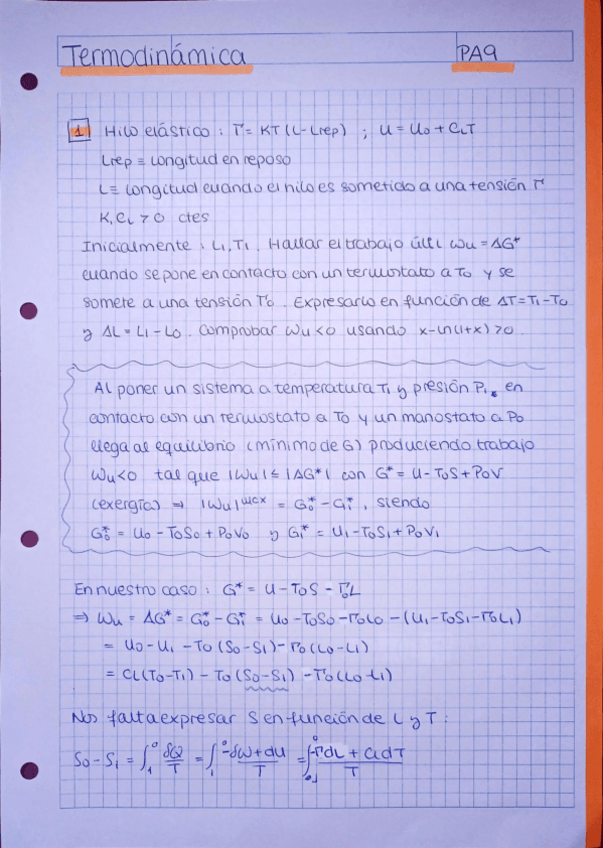 Termodinámica
PA9
1 Hilo elástico : Γ = KT (L-Lrep) ; U = U0 + CLT
Lrep ≡ longitud en reposo
L ≡ longitud cuando el hilo es sometido a una tensión Γ
K, CL > 0 ctes
Inicialmente : L1, T1. Hallar el trabajo útil Wu = ΔG*
cuando se pone en contacto con un termostato a T0 y se
somete a una tensión Γ0. Expresarlo en función de ΔT = T1-T0
y ΔL = L1 - L0. Comprobar Wu<0 usando x-ln(1+x) >0.
Al poner un sistema a temperatura T1 y presión P1, en
contacto con un termostato a T0 y un manostato a P0
llega al equilibrio (mínimo de G) produciendo trabajo
Wu<0 tal que |Wu| ≤ |ΔG*| con G* = U - T0S + P0V
(exergía) ⇒ |Wu|max = G0* - G1*, siendo
G0* = U0 - T0S0 + P0V0 y G1* = U1 - T0S1 + P0V1
En nuestro caso : G* = U - T0S - Γ0L
⇒ Wu = ΔG* = G0* - G1* = U0 - T0S0 - Γ0L0 - (U1 - T0S1 - Γ0L1)
= U0 - U1 - T0 (S0 - S1) - Γ0 (L0 - L1)
= CL(T0 - T1) - T0 (S0 - S1) - Γ0 (L0 - L1)
Nos falta expresar S en función de L y T :
S0 - S1 = ∫₁⁰ δQ/T = ∫₁⁰ (-δW + dU)/T = ∫₁⁰ (-ΓdL + CLdT)/T